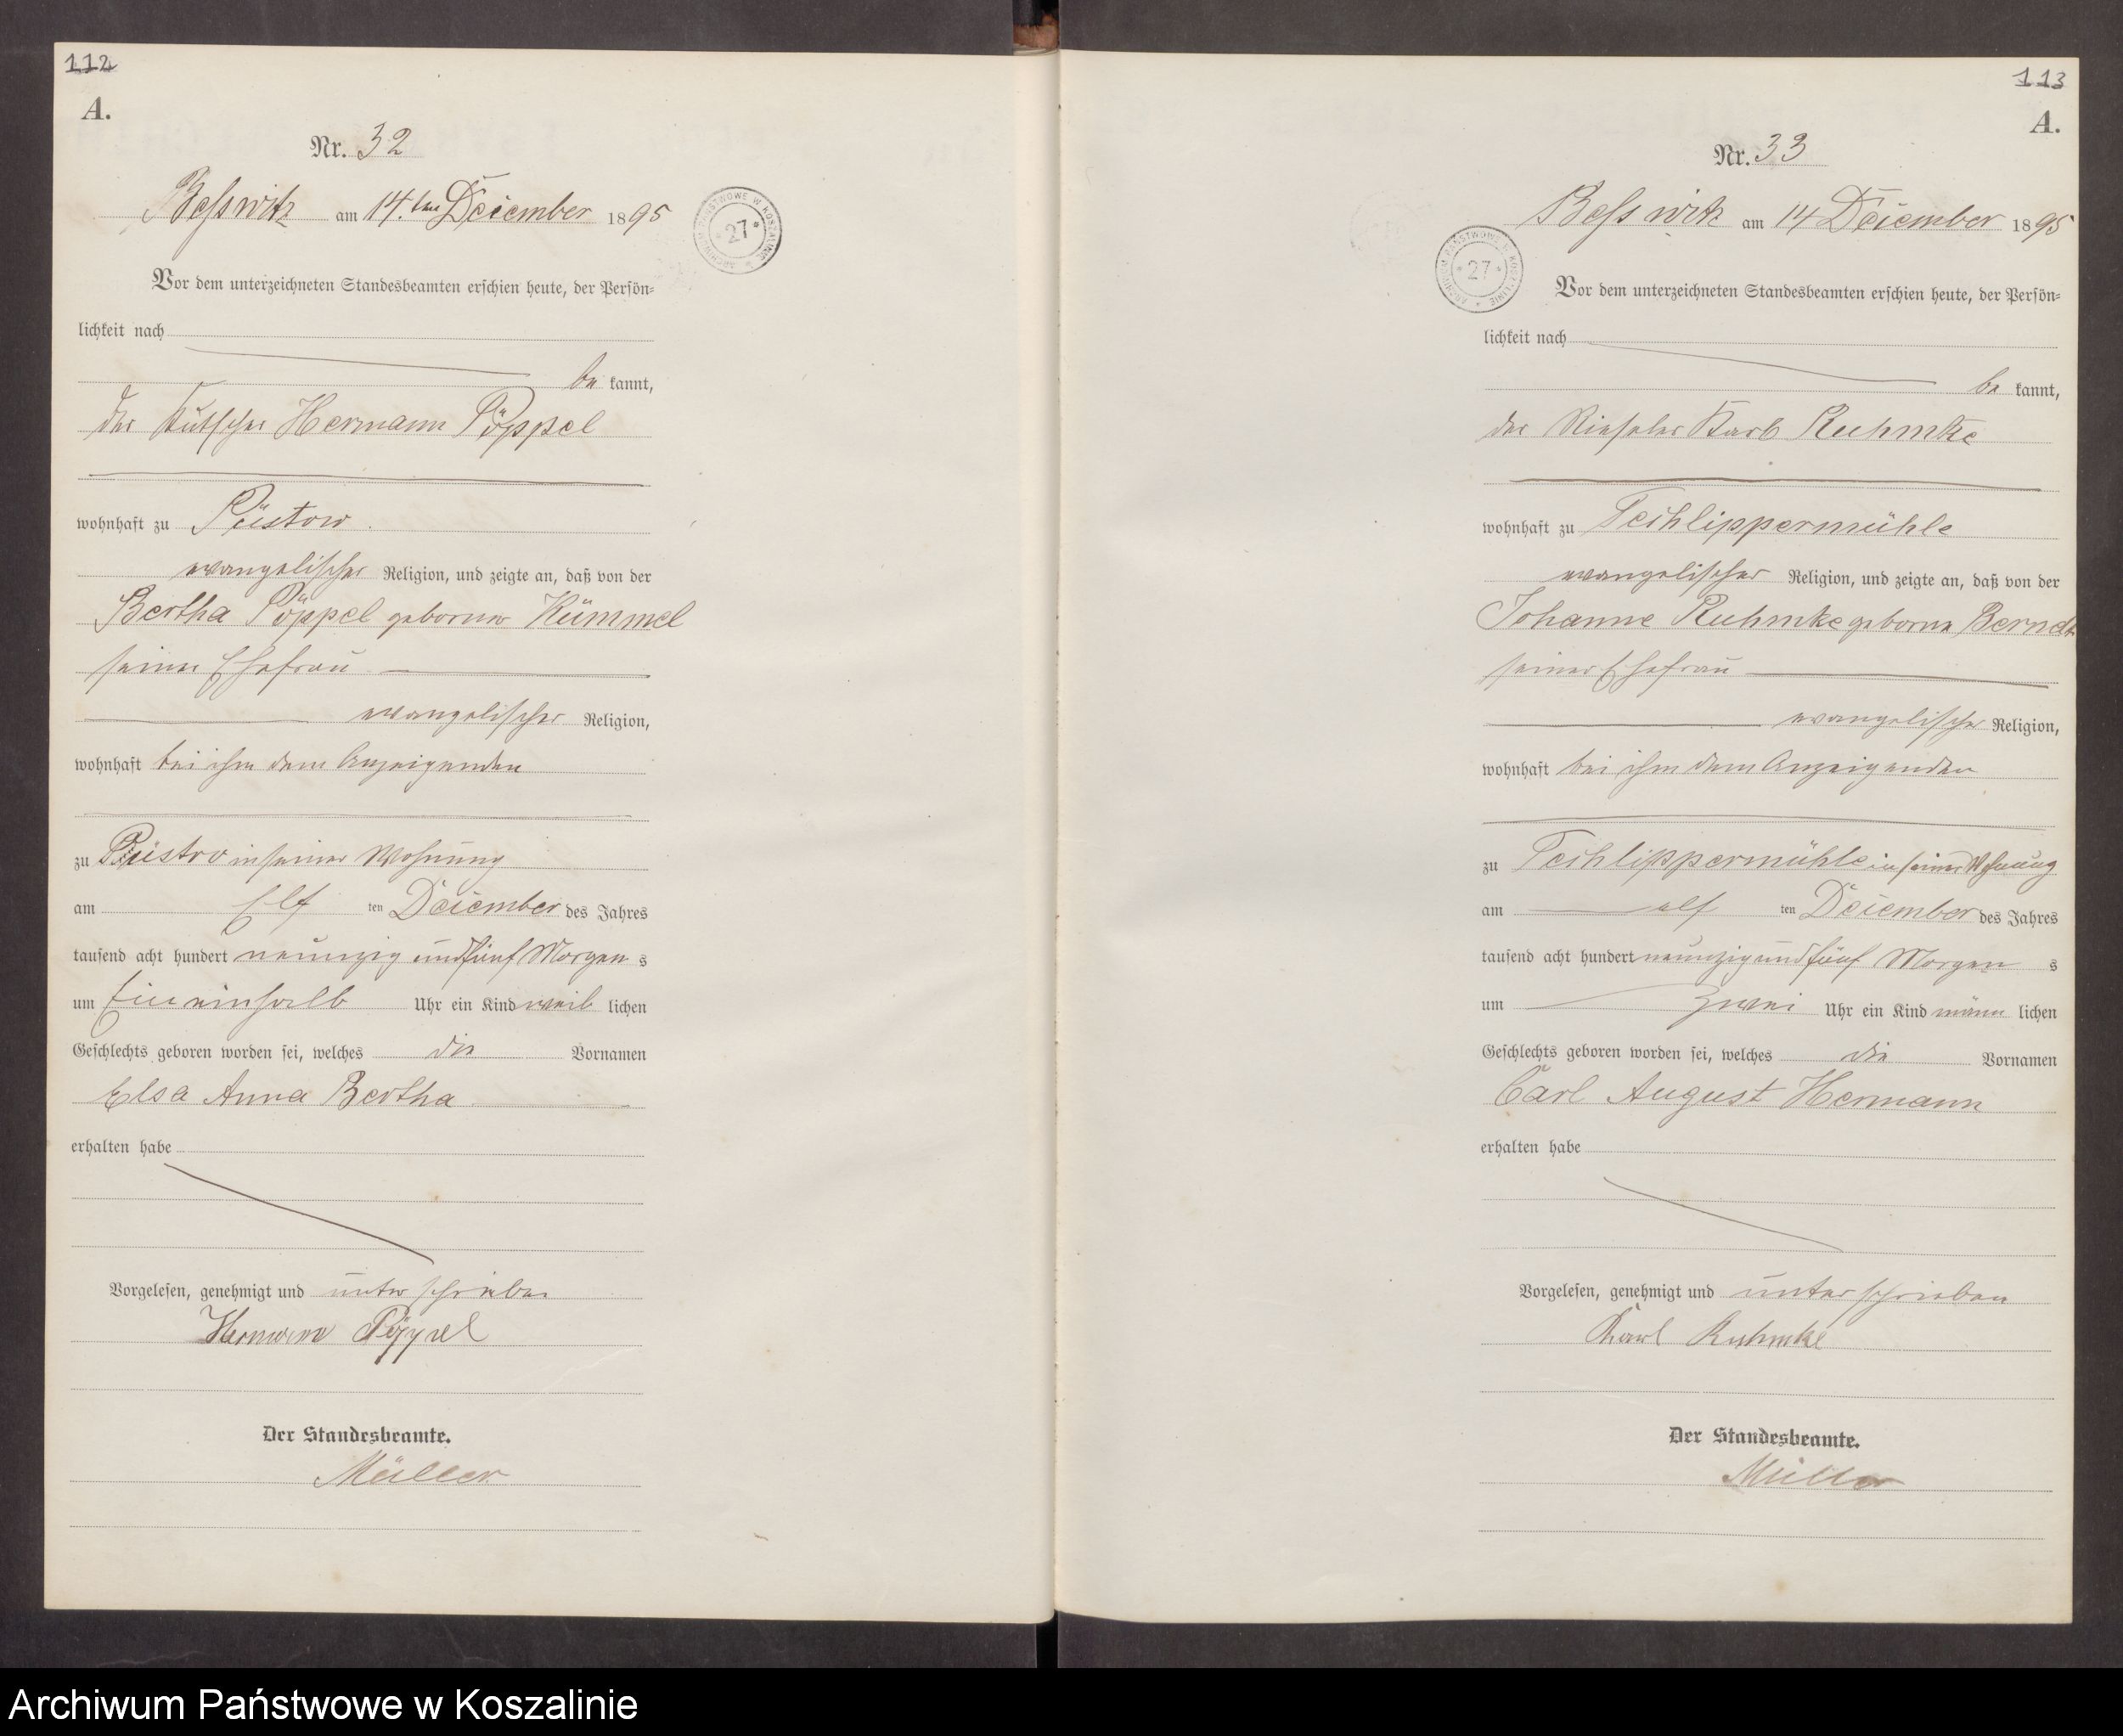 112
A.
Nr. 32
Besswitz am 14.ten December 1895
Vor dem unterzeichneten Standesbeamten erschien heute, der Persön=
lichkeit nach
be kannt,
der Kutscher Hermann Pöppel
wohnhaft zu Püstow.
evangelischer Religion, und zeigte an, daß von der
Bertha Pöppel geborene Kümmel
seiner Ehefrau
evangelischer Religion,
wohnhaft bei ihm dem Anzeigenden
zu Püstow in seiner Wohnung
am Elf ten December des Jahres
tausend acht hundert neunzig und fünf Morgen s
um Ein einhalb Uhr ein Kind weib lichen
Geschlechts geboren worden sei, welches die Vornamen
Elsa Anna Bertha
erhalten habe
Vorgelesen, genehmigt und unterschrieben
Hermann Pöppel
Der Standesbeamte.
Müller
ARCHIWUM PAŃSTWOWE W KOSZALINIE
* 27 *
113
A.
Nr. 33
Besswitz am 14 December 1895
ARCHIWUM PAŃSTWOWE W KOSZALINIE
* 27 *
Vor dem unterzeichneten Standesbeamten erschien heute, der Persön=
lichkeit nach
be kannt,
der Rieseler Karl Ruhmke
wohnhaft zu Techlippermühle
evangelischer Religion, und zeigte an, daß von der
Johanne Ruhmke geborne Berndt
seiner Ehefrau
evangelischer Religion,
wohnhaft bei ihm dem Anzeigenden
zu Techlippermühle in seiner Wohnung
am elf ten December des Jahres
tausend acht hundert neunzig und fünf Morgen s
um Zwei Uhr ein Kind männ lichen
Geschlechts geboren worden sei, welches die Vornamen
Carl August Hermann
erhalten habe
Vorgelesen, genehmigt und unterschrieben
Karl Ruhmke
Der Standesbeamte.
Müller
Archiwum Państwowe w Koszalinie